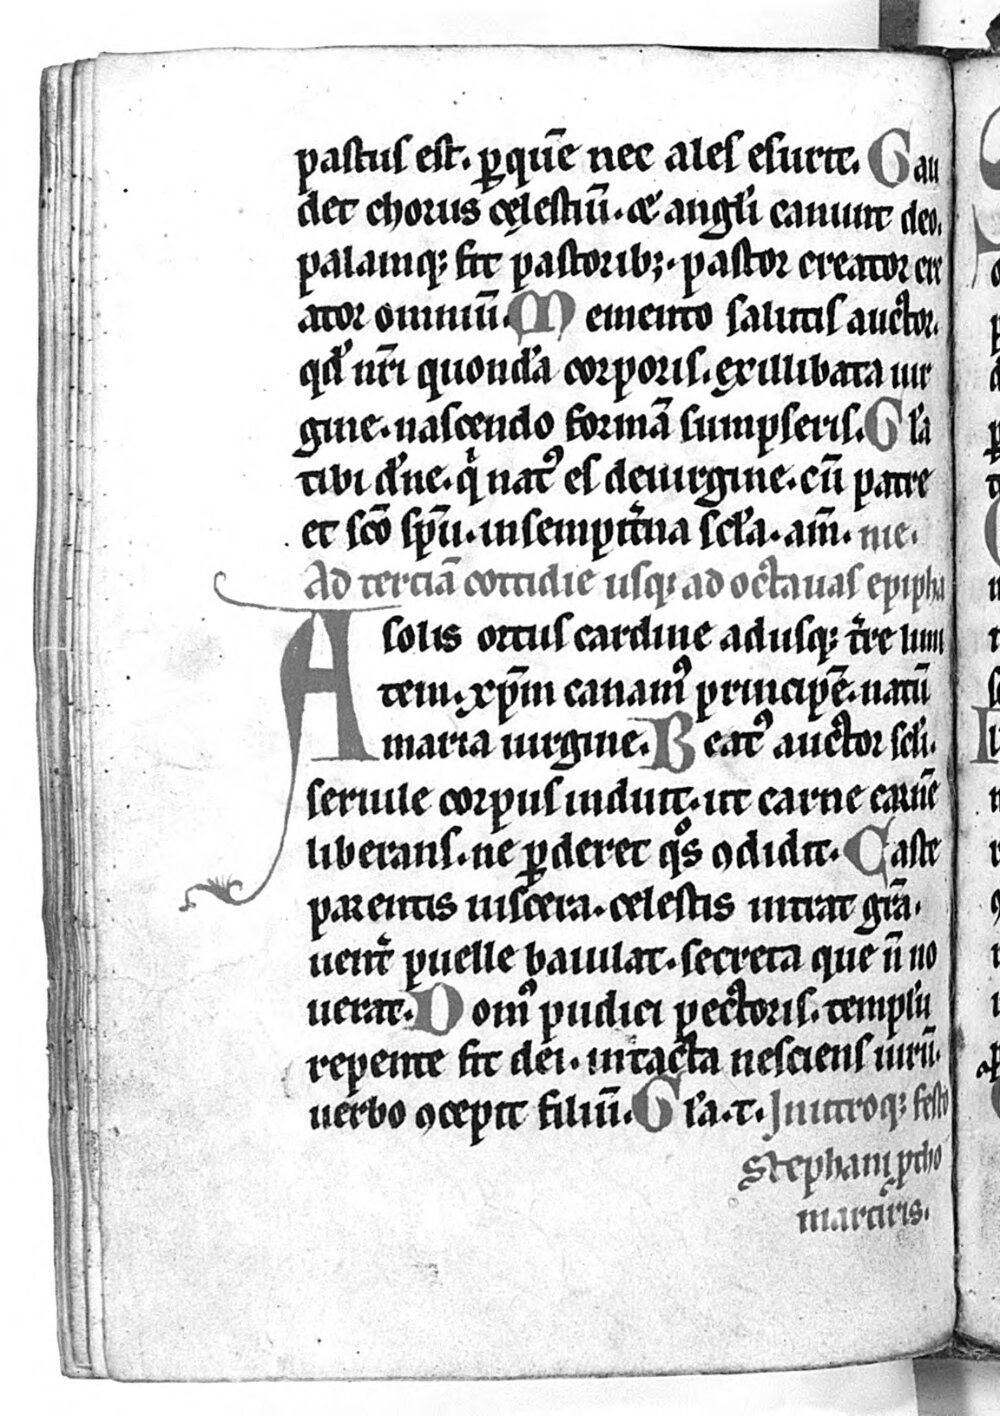 pastus est. ꝑ quē nec ales esurit. Gau
det chorus cęlestiū. ⁊ angli canunt deo.
palamq; fit pastorib;. pastor creator cre
ator omniū. Memento salutis auctor.
qd' nr̄i quond'a corporis. ex illibata uir
gine. nascendo formā sumpseris. Gl'a
tibi dn̄e. qͥ natꝰ es de uirgine. cū patre
et sc̄o sp̄u. in sempit̄na sc̄l'a. am̄. nie.
Ad terciā cottidie usq; ad octauas epipha
A solis ortus cardine adusq; t̄re limi
tem. xp̄m canamꝰ principē. natū
maria uirgine. Beatꝰ auctor sc̄li.
seruile corpus induit. ut carne carnē
liberans. ne ꝑderet qͦs ꝯdidit. Caste
parentis uiscera. celestis intrat gr̄a.
uent̄ puelle baiulat. secreta que n̄ no
uerat. Domꝰ pudici pectoris. templū
repente fit dei. intacta nesciens uirū.
uerbo ꝯcepit filiū. Gl'a. t. In utroq; festo
stephani ꝓtho
martiris.